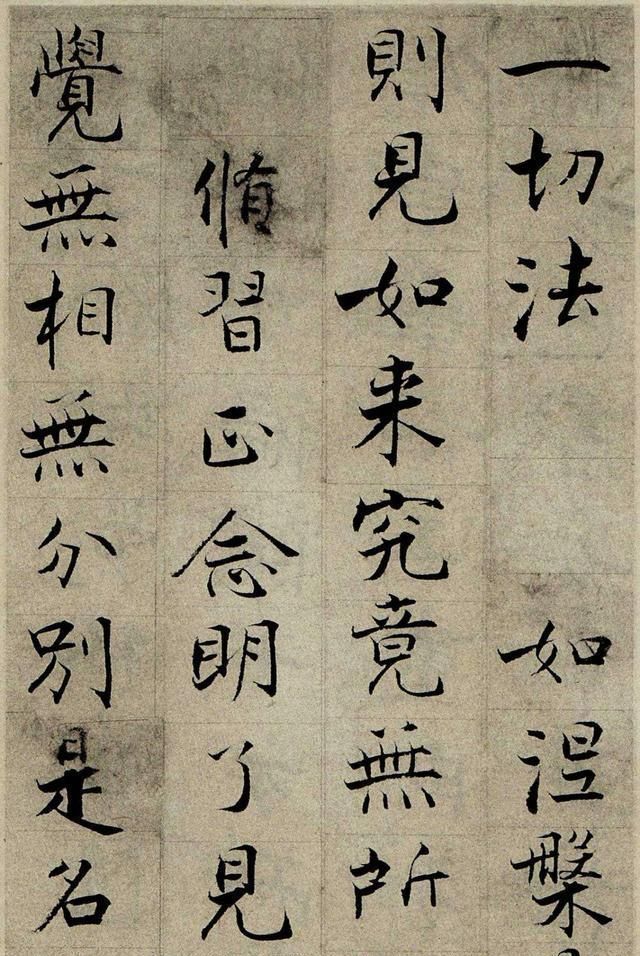 一切法如涅槃
則見如来究竟無所
脩習正念明了見
覺無相無分別是名